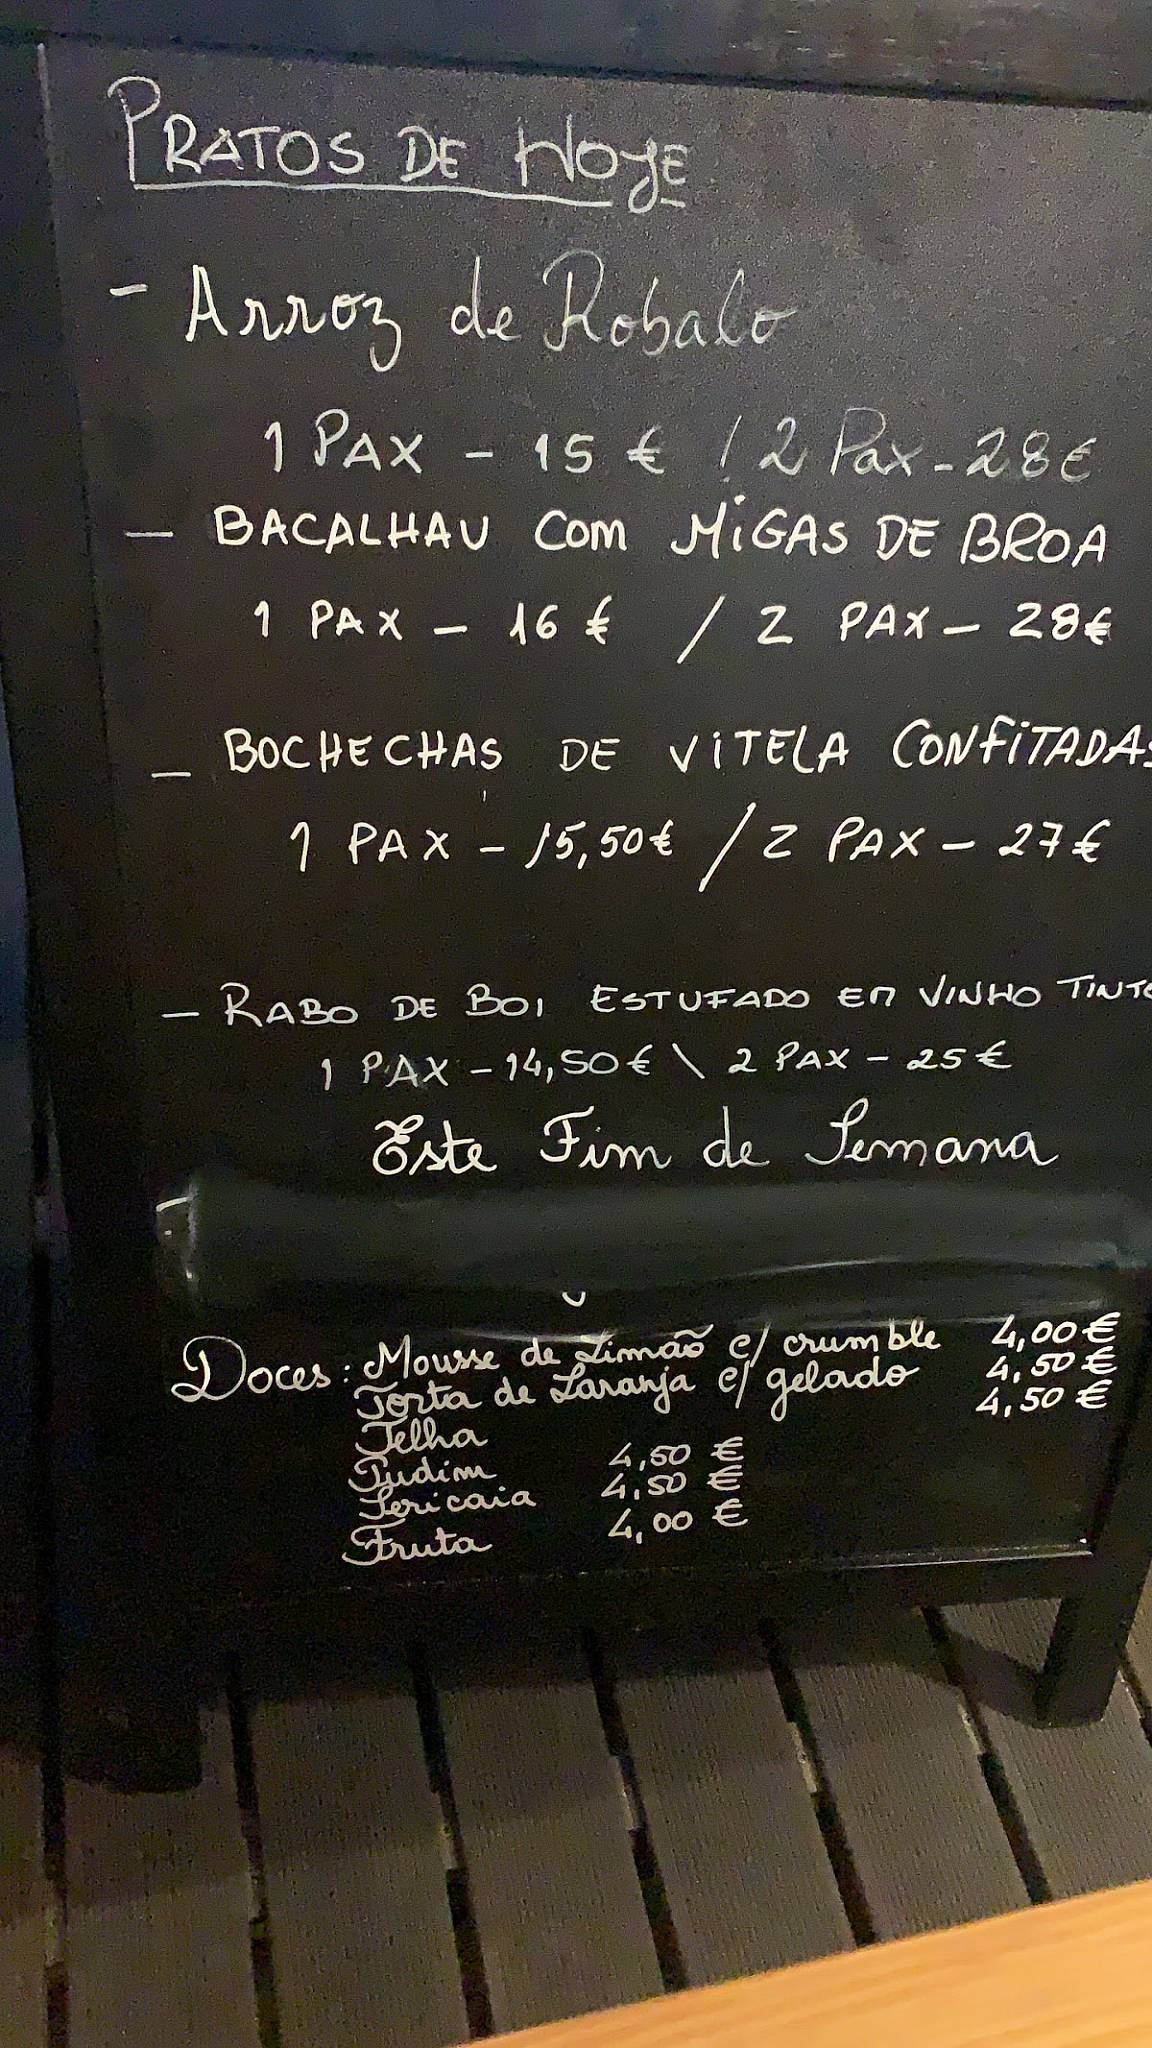 PRATOS DE HOJE
- Arroz de Robalo
1 PAX - 15 € / 2 Pax - 28€
- BACALHAU COM MIGAS DE BROA
1 PAX - 16 € / 2 PAX - 28€
- BOCHECHAS DE VITELA CONFITADAS
1 PAX - 15,50€ / 2 PAX - 27€
- RABO DE BOI ESTUFADO EM VINHO TINTO
1 PAX - 14,50€ \ 2 PAX - 25€
Este Fim de Semana
Doces: Mousse de Limão c/ crumble 4,00€
Torta de Laranja c/ gelado 4,50€
Telha 4,50€
Pudim 4,50€
Sericaia 4,50€
Fruta 4,00€